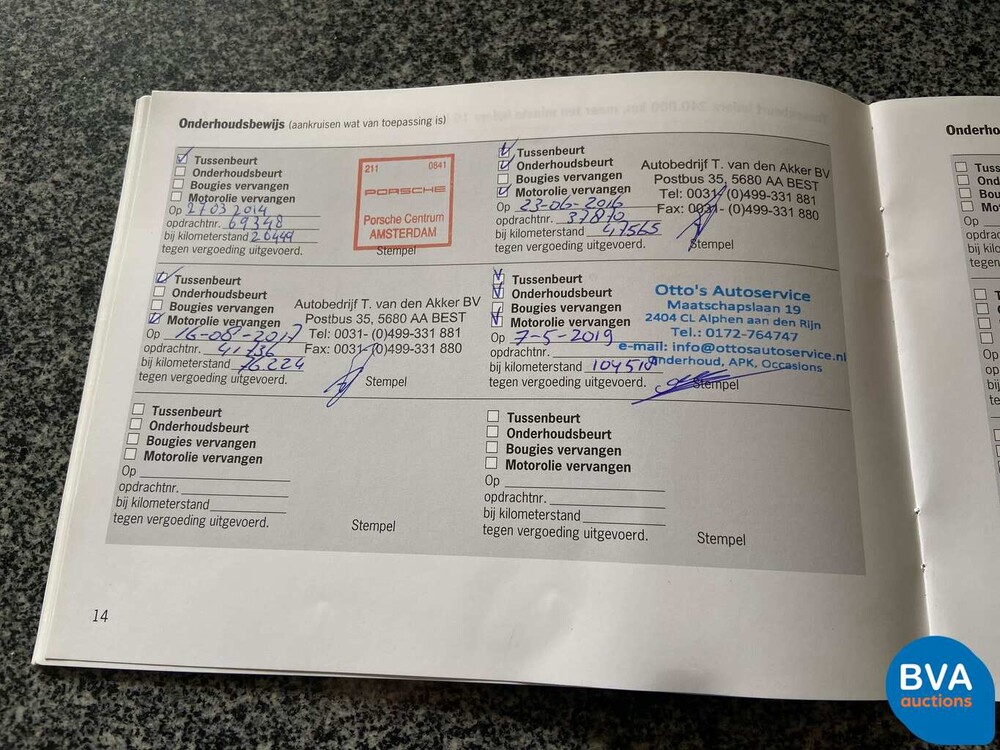 Onderhoudsbewijs (aankruisen wat van toepassing is)
Tussenbeurt
Onderhoudsbeurt
Bougies vervangen
Motorolie vervangen
Op 27 03 2014
opdrachtnr. 69348
bij kilometerstand 20449
tegen vergoeding uitgevoerd.
211 0841
PORSCHE
Porsche Centrum
AMSTERDAM
Stempel
Tussenbeurt
Onderhoudsbeurt
Bougies vervangen
Motorolie vervangen
Op 23-06-2016
opdrachtnr. 37870
bij kilometerstand 47565
tegen vergoeding uitgevoerd.
Autobedrijf T. van den Akker BV
Postbus 35, 5680 AA BEST
Tel: 0031- (0)499-331 881
Fax: 0031- (0)499-331 880
Stempel
Tussenbeurt
Onderhoudsbeurt
Bougies vervangen
Motorolie vervangen
Op 16-08-2017
opdrachtnr. 41736
bij kilometerstand 76224
tegen vergoeding uitgevoerd.
Autobedrijf T. van den Akker BV
Postbus 35, 5680 AA BEST
Tel: 0031- (0)499-331 881
Fax: 0031- (0)499-331 880
Stempel
Tussenbeurt
Onderhoudsbeurt
Bougies vervangen
Motorolie vervangen
Op 7-5-2019
opdrachtnr.
bij kilometerstand 104510
tegen vergoeding uitgevoerd.
Otto's Autoservice
Maatschapslaan 19
2404 CL Alphen aan den Rijn
Tel.: 0172-764747
e-mail: info@ottosautoservice.nl
Onderhoud, APK, Occasions
Stempel
Tussenbeurt
Onderhoudsbeurt
Bougies vervangen
Motorolie vervangen
Op
opdrachtnr.
bij kilometerstand
tegen vergoeding uitgevoerd.
Stempel
Tussenbeurt
Onderhoudsbeurt
Bougies vervangen
Motorolie vervangen
Op
opdrachtnr.
bij kilometerstand
tegen vergoeding uitgevoerd.
Stempel
14
Onderho
Tuss
Ond
Bou
Mot
Op
opdrac
bij kilo
tegen
BVA
auctions